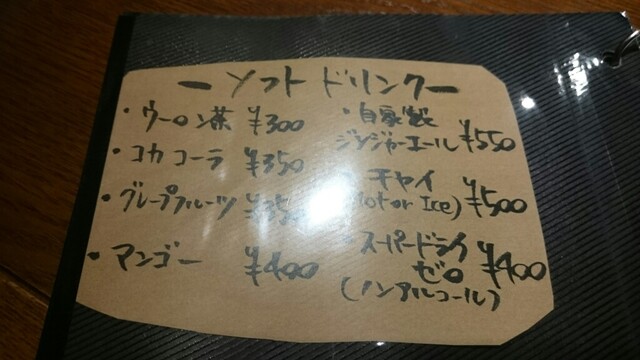 ー ソフト ドリンク ー
・ウーロン茶 ¥300
・コカ コーラ ¥350
・グレープフルーツ ¥350
・マンゴー ¥400
・自家製
ジンジャーエール ¥550
チャイ
(Hot or Ice) ¥500
・スーパードライ
ゼロ ¥400
(ノンアルコール)